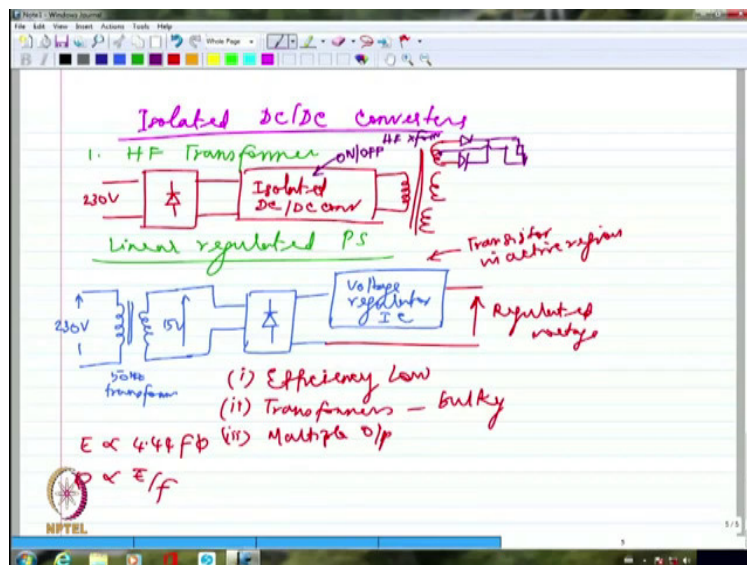 Note1 - Windows Journal
File Edit View Insert Actions Tools Help
Whole Page
B I
Isolated DC/DC Converters
1. HF Transformer
ON/OFF
HF xformr
230V
Isolated
DC/DC conv
Linear regulated PS
Transistor
in active region
230V
15V
Voltage
regulator
IC
Regulated
voltage
50Hz
transform
(i) Efficiency Low
(ii) Transformers - bulky
E ∝ 4.44 f Φ
(iii) Multiple O/p
Φ ∝ E/f
NPTEL
5/5
5